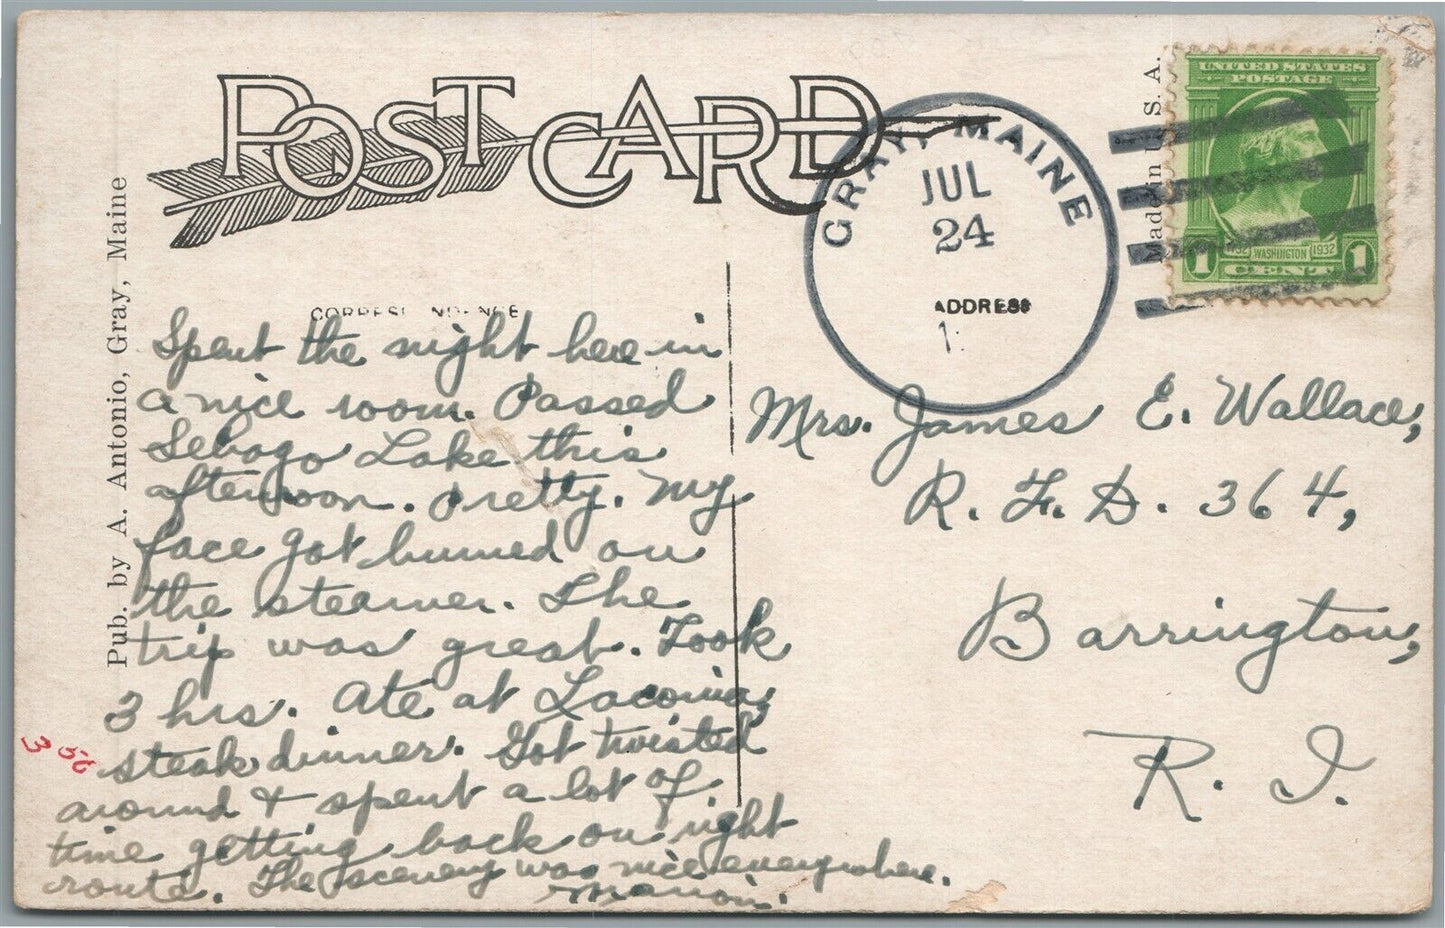 POST CARD
Pub. by A. Antonio, Gray, Maine
CORRESPONDENCE
Spent the night here in
a nice room. Passed
Sebago Lake this
afternoon. Pretty. My
face got burned on
the steamer. The
trip was great. Took
3 hrs. Ate at Laconia,
steak dinner. Got twisted
around & spent a lot of
time getting back on right
route. The scenery was nice everywhere.
Marion.
350
GRAY, MAINE
JUL
24
ADDRESS
Made in U. S. A.
UNITED STATES
POSTAGE
1732 WASHINGTON 1932
1 CENT 1
Mrs. James E. Wallace,
R. F. D. 364,
Barrington,
R. I.